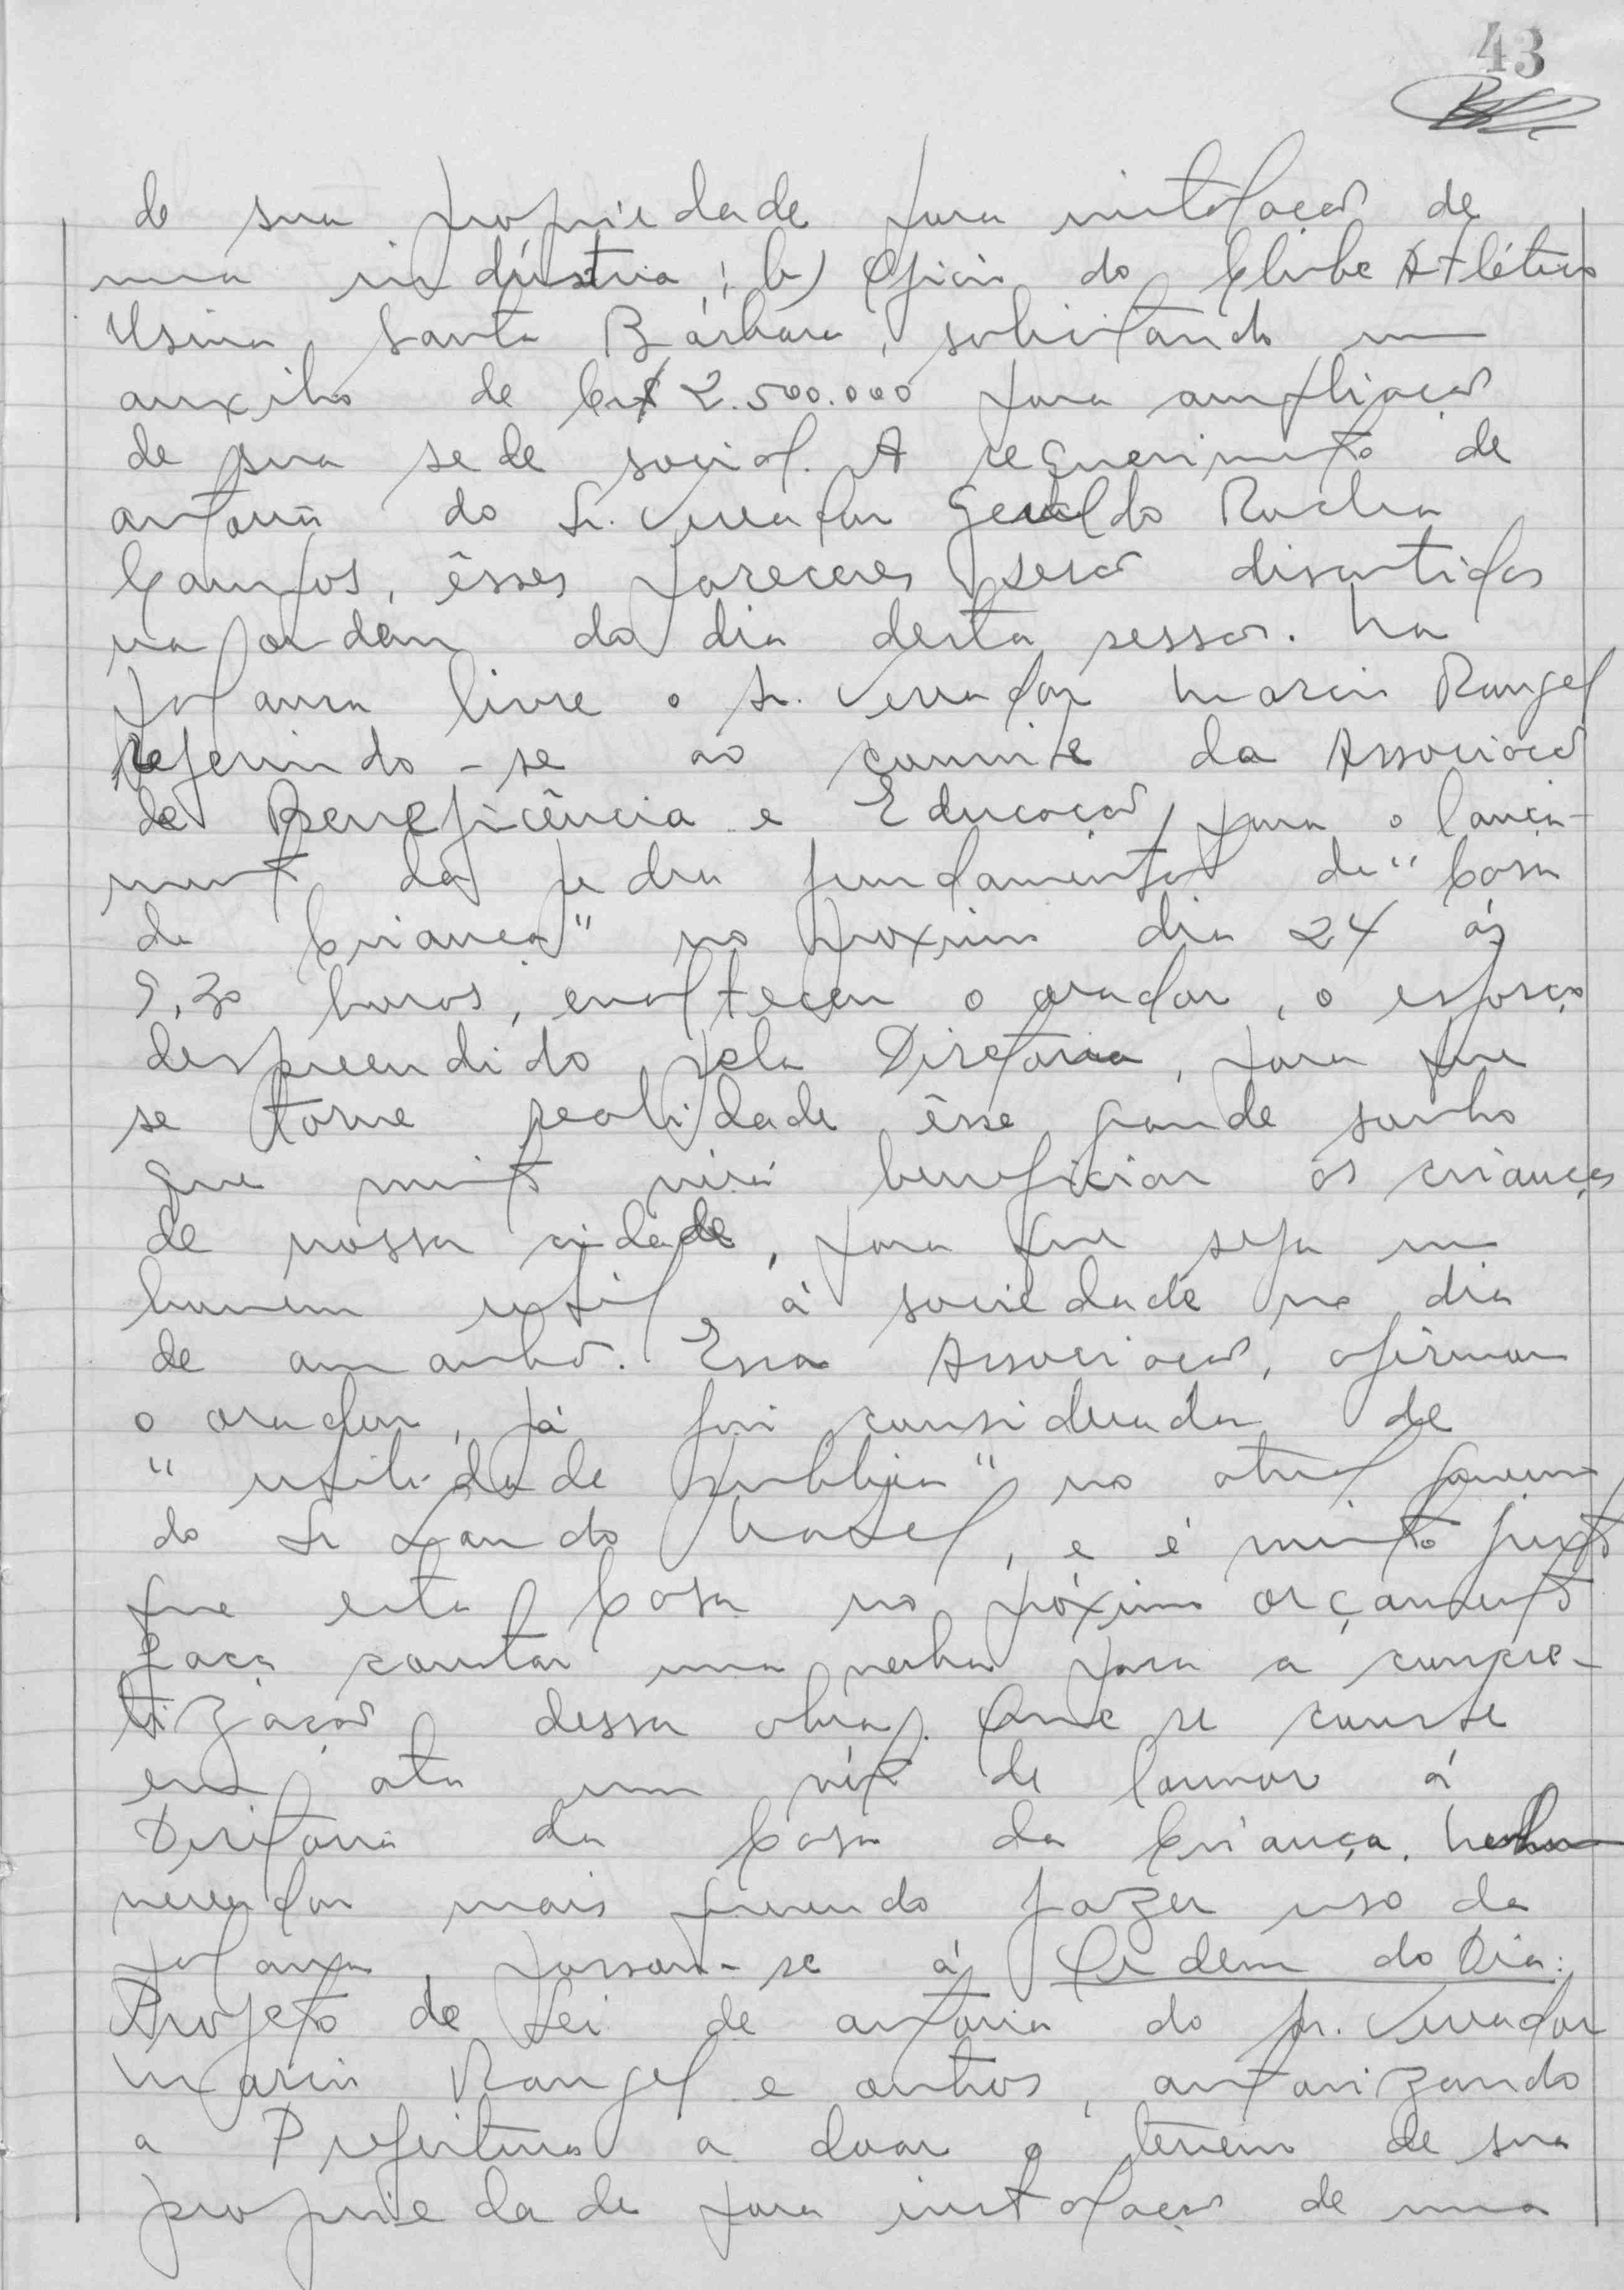 43
de sua propriedade para instalação de
uma indústria; b) Oficio do Clube Atlético
Usina Santa Bárbara, solicitando um
auxilio de Cr$ 2.500.000 para ampliação
de sua sede social. A requerimento de
autoria do Sr. Vereador Geraldo Rocha
Campos, êsses pareceres serão discutidos
na ordem do dia desta sessão. Na
palavra livre o Sr. Vereador Marcio Rangel
referindo-se ao convite da Associação
de Beneficência e Educação, para o lança-
mento da pedra fundamental da "Casa
da Criança" no proximo dia 24 ás
9,30 horas, enalteceu o orador, o esforço
despreendido pela Diretoria, para que
se torne realidade êsse grande sonho
que muito virá beneficiar as crianças
de nossa cidade, para que seja um
homem util á sociedade no dia
de amanhã. Essa Associação, afirmou
o orador, já foi considerada de
"utilidade publica" no atual governo
do Sr. Lando, e é muito justo
que esta Casa no próximo orçamento
faça constar uma verba para a concre-
tização dessa obra. Que se conste
em ata um voto de louvor á
Diretoria da Casa da Criança. Nenhum
vereador mais querendo fazer uso da
palavra, passou-se á Ordem do Dia:
Projeto de Lei de autoria do Sr. Vereador
Marcio Rangel e outros, autorizando
a Prefeitura a doar o terreno de sua
propriedade para instalação de uma